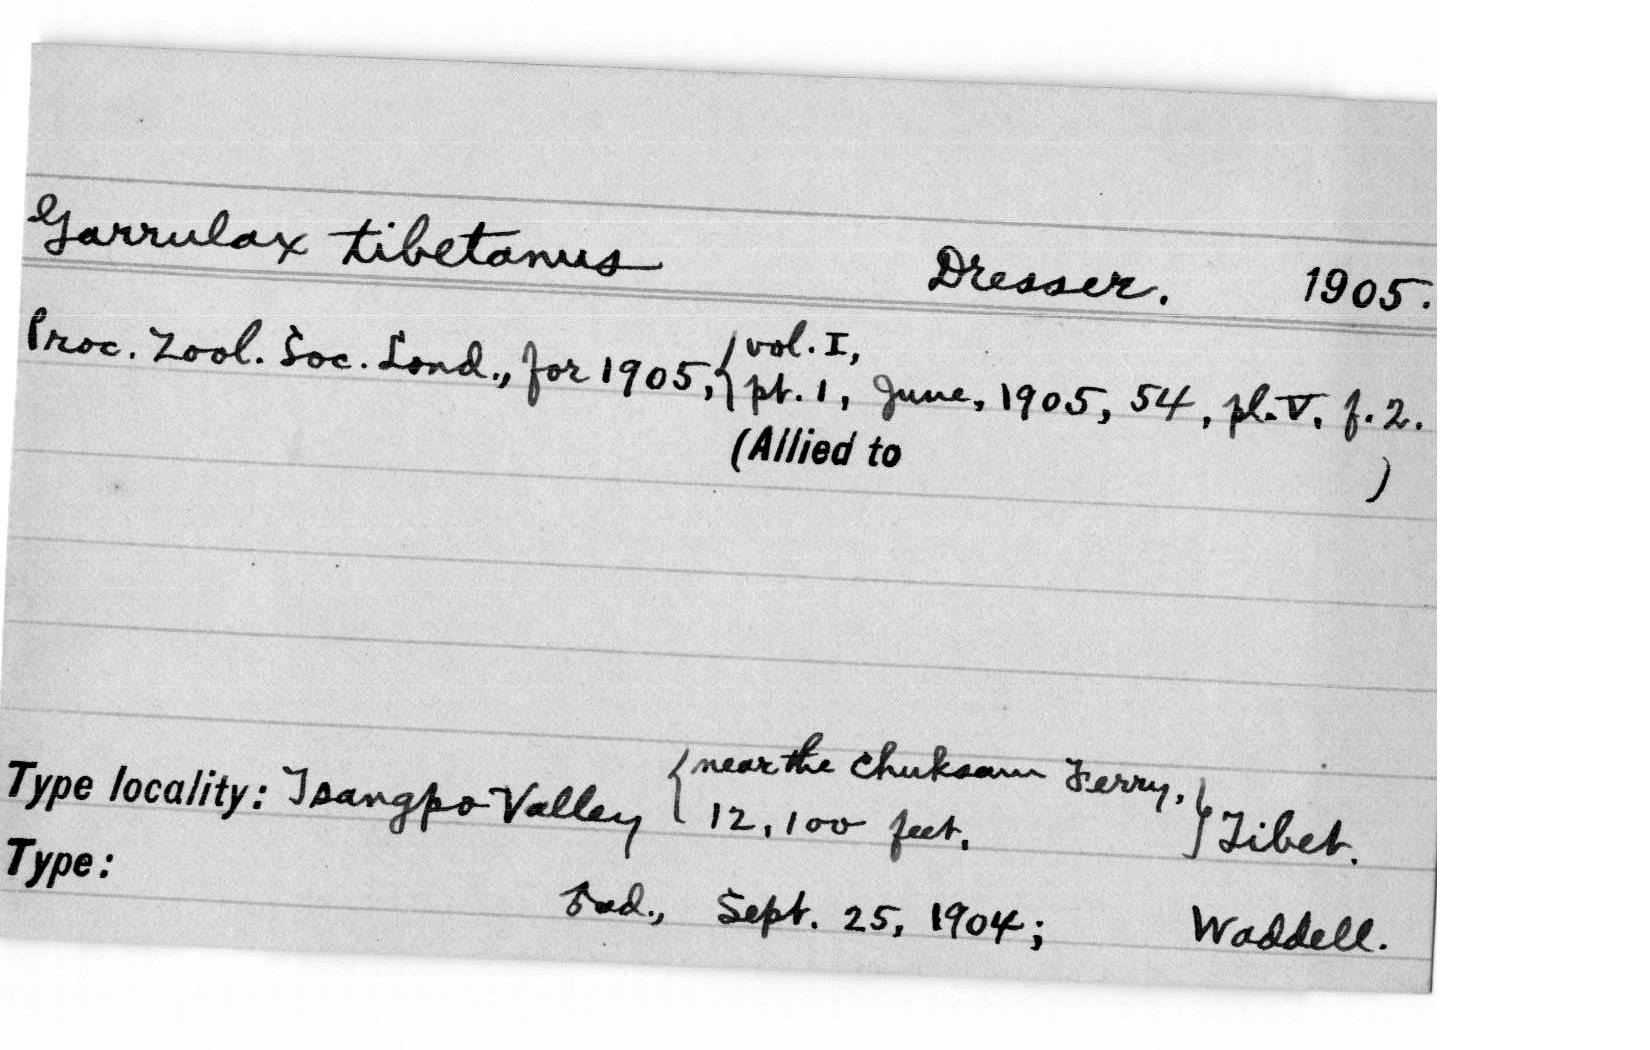 Garrulax tibetanus Dresser. 1905.
Proc. Zool. Soc. Lond., for 1905, { vol. I,
pt. 1, June, 1905, 54, pl. V, f. 2.
(Allied to )
Type locality: Tsangpo Valley { near the Chuksam Ferry,
12,100 feet. } Tibet.
Type:
ad., Sept. 25, 1904; Waddell.